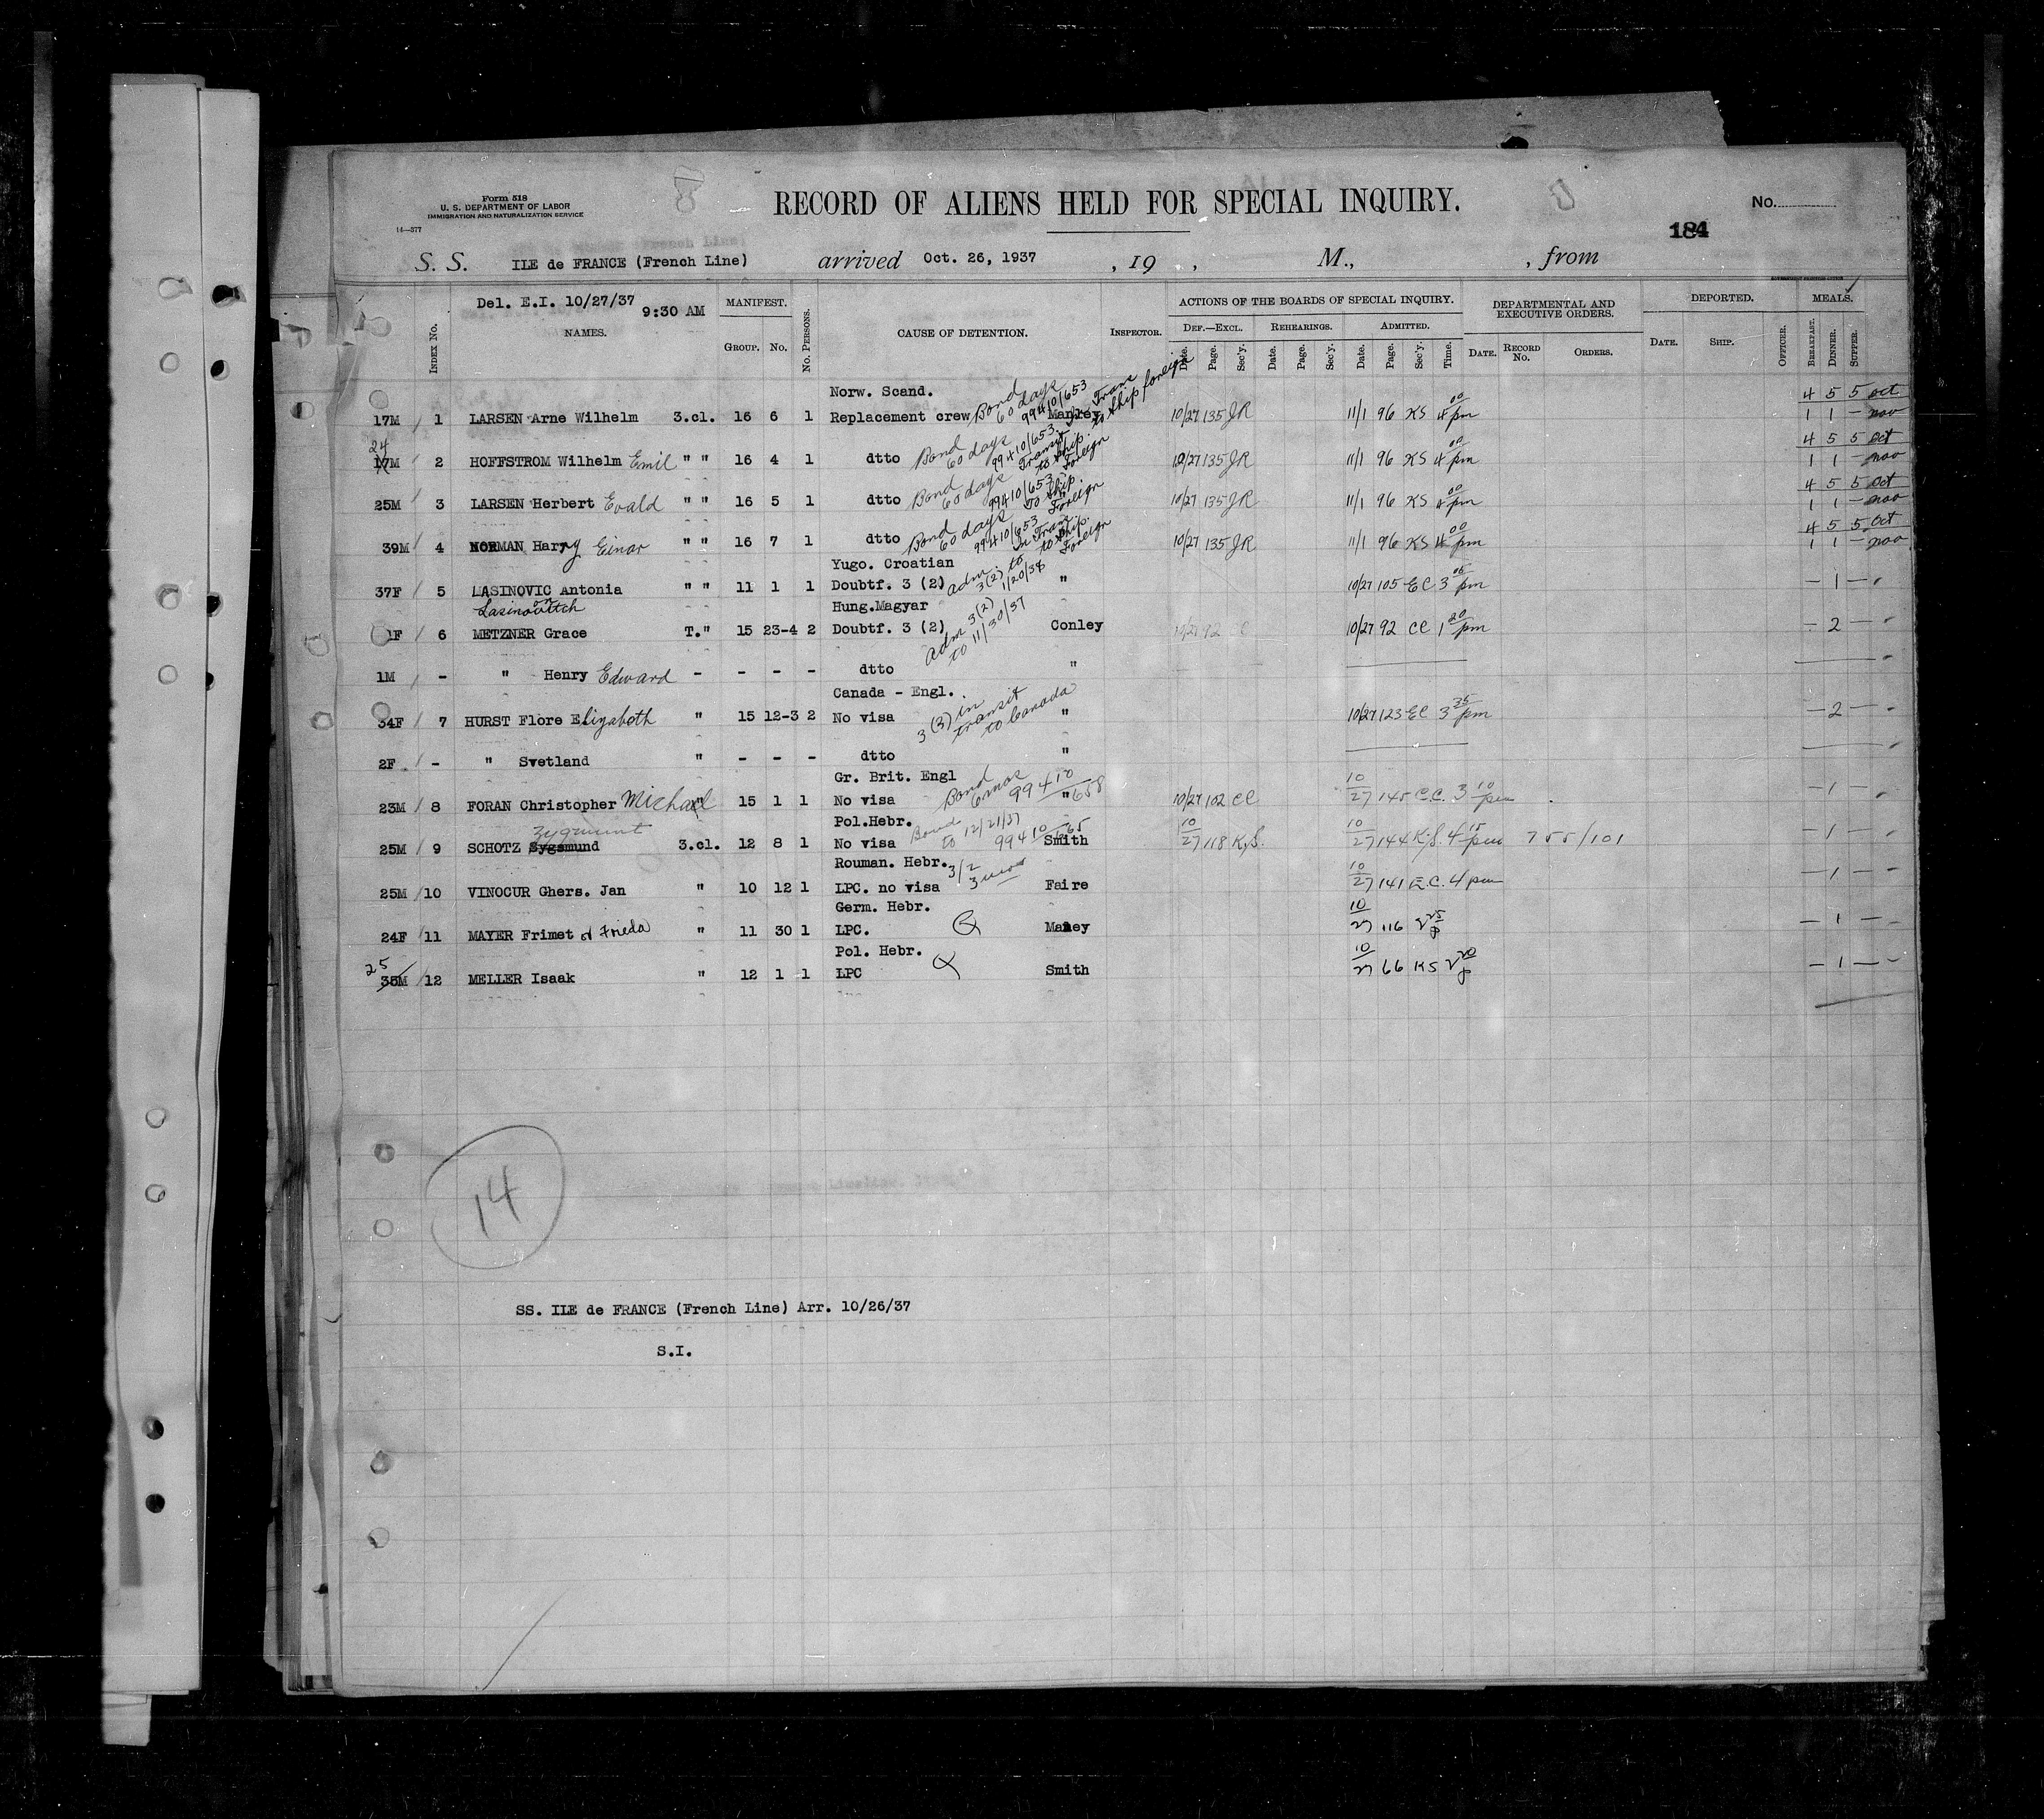 Form 518
U. S. DEPARTMENT OF LABOR
IMMIGRATION AND NATURALIZATION SERVICE
14—577
RECORD OF ALIENS HELD FOR SPECIAL INQUIRY.
No.
184
S. S. ILE de FRANCE (French Line) arrived Oct. 26, 1937 , 19 , M., , from
Del. E.I. 10/27/37 9:30 AM
INDEX No. NAMES. MANIFEST. GROUP. No. No. PERSONS. CAUSE OF DETENTION. INSPECTOR. ACTIONS OF THE BOARDS OF SPECIAL INQUIRY. DEPARTMENTAL AND EXECUTIVE ORDERS. DEPORTED. MEALS.
DEF.—EXCL. REHEARINGS. ADMITTED.
Date. Page. Sec'y. Date. Page. Sec'y. Date. Page. Sec'y. Time. DATE. RECORD No. ORDERS. DATE. SHIP. OFFICER. BREAKFAST. DINNER. SUPPER.
Norw. Scand. 4 5 5 oct
17M 1 LARSEN Arne Wilhelm 3.cl. 16 6 1 Replacement crew Bond 60 days 99410/653 In Trans to ship foreign 10/27 135 JR 11/1 96 KS 4 00 pm 1 1 - nov
24 4 5 5 oct
17M 2 HOFFSTROM Wilhelm Emil " " 16 4 1 dtto Bond 60 days 99410/653. Transit to ship. Foreign 10/27 135 JR 11/1 96 KS 4 00 pm 1 1 - nov
4 5 5 oct
25M 3 LARSEN Herbert Evald " " 16 5 1 dtto Bond 60 days 99410/653 To ship. Foreign 10/27 135 JR 11/1 96 KS 4 00 pm 1 1 - nov
4 5 5 Oct
39M 4 NORMAN Harry Einar " " 16 7 1 dtto Bond 60 days 99410/653 In Tran. to ship. Foreign 10/27 135 JR 11/1 96 KS 4 00 pm 1 1 - nov
Yugo. Croatian
37F 5 LASINOVIC Antonia " " 11 1 1 Doubtf. 3 (2) adm. to 3(2) 1/20/38 " 10/27 105 EC 3 05 pm - 1 -
Lasinovitch
Hung.Magyar
F 6 METZNER Grace T." 15 23-4 2 Doubtf. 3 (2) adm 3(2) to 11/30/37 Conley 10/27 92 C 10/27 92 CC 1 20 pm - 2 -
1M - " Henry Edward - - - - dtto "
Canada - Engl.
34F 7 HURST Flore Elizabeth " 15 12-3 2 No visa 3(3) in transit to Canada " 10/27 123 EC 3 35 pm - 2 -
2F - " Svetland " - - - dtto "
Gr. Brit. Engl
23M 8 FORAN Christopher Michael " 15 1 1 No visa Bond 6 mos 99410/658 " 10/27 102 CC 10/27 145 C.C. 3 10 pm - 1 -
Pol.Hebr.
Zygmunt
25M 9 SCHOTZ Sygsmund 3.cl. 12 8 1 No visa Bond to 12/21/37 99410/665 Smith 10/27 118 K.S. 10/27 144 K.S. 4 15 pm 755/101 - 1 -
Rouman. Hebr.
25M 10 VINOCUR Ghers. Jan " 10 12 1 LPC. no visa 3/2 3 mos Faire 10/27 141 E.C. 4 pm - 1 -
Germ. Hebr.
24F 11 MAYER Frimet or Frieda " 11 30 1 LPC. 10/27 116 25 - 1 -
Pol. Hebr.
25
35M 12 MELLER Isaak " 12 1 1 LPC Smith 10/27 66 KS 20 - 1 -
14
SS. ILE de FRANCE (French Line) Arr. 10/26/37
S.I.